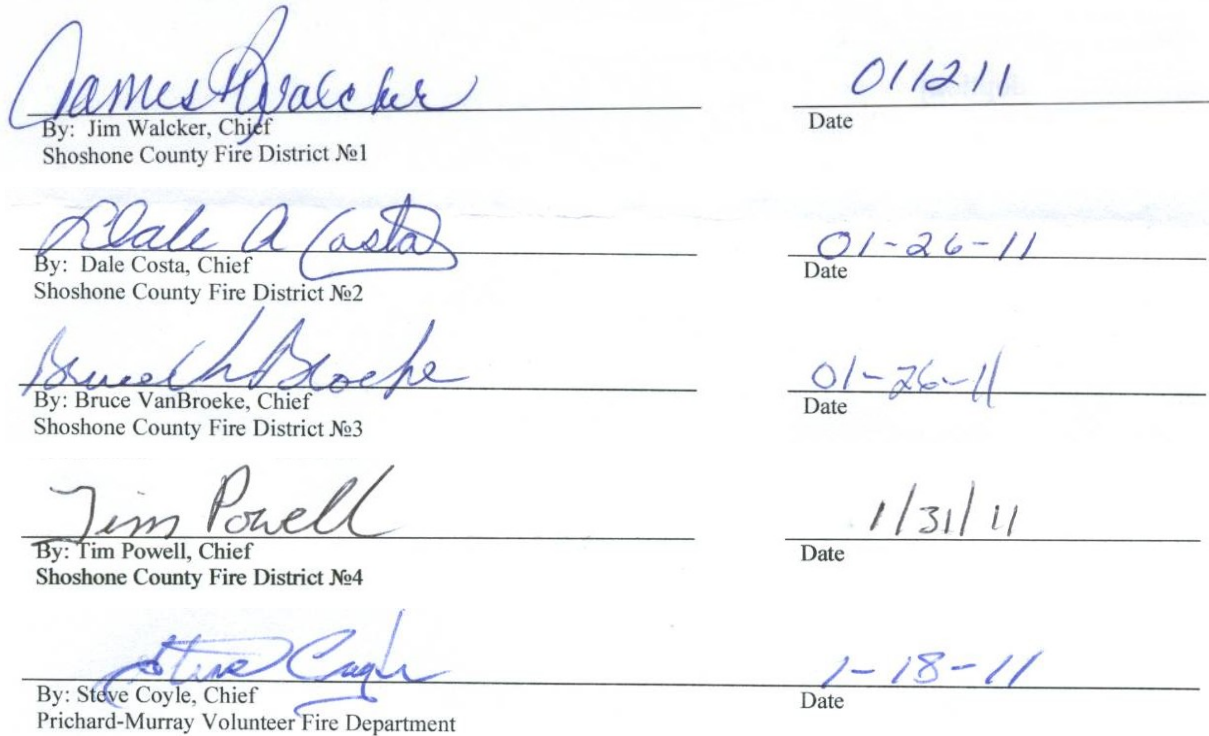 James Walcker 011211
By: Jim Walcker, Chief Date
Shoshone County Fire District №1
Dale A Costa 01-26-11
By: Dale Costa, Chief Date
Shoshone County Fire District №2
01-26-11
By: Bruce VanBroeke, Chief Date
Shoshone County Fire District №3
Tim Powell 1/31/11
By: Tim Powell, Chief Date
Shoshone County Fire District №4
Steve Coyle 1-18-11
By: Steve Coyle, Chief Date
Prichard-Murray Volunteer Fire Department